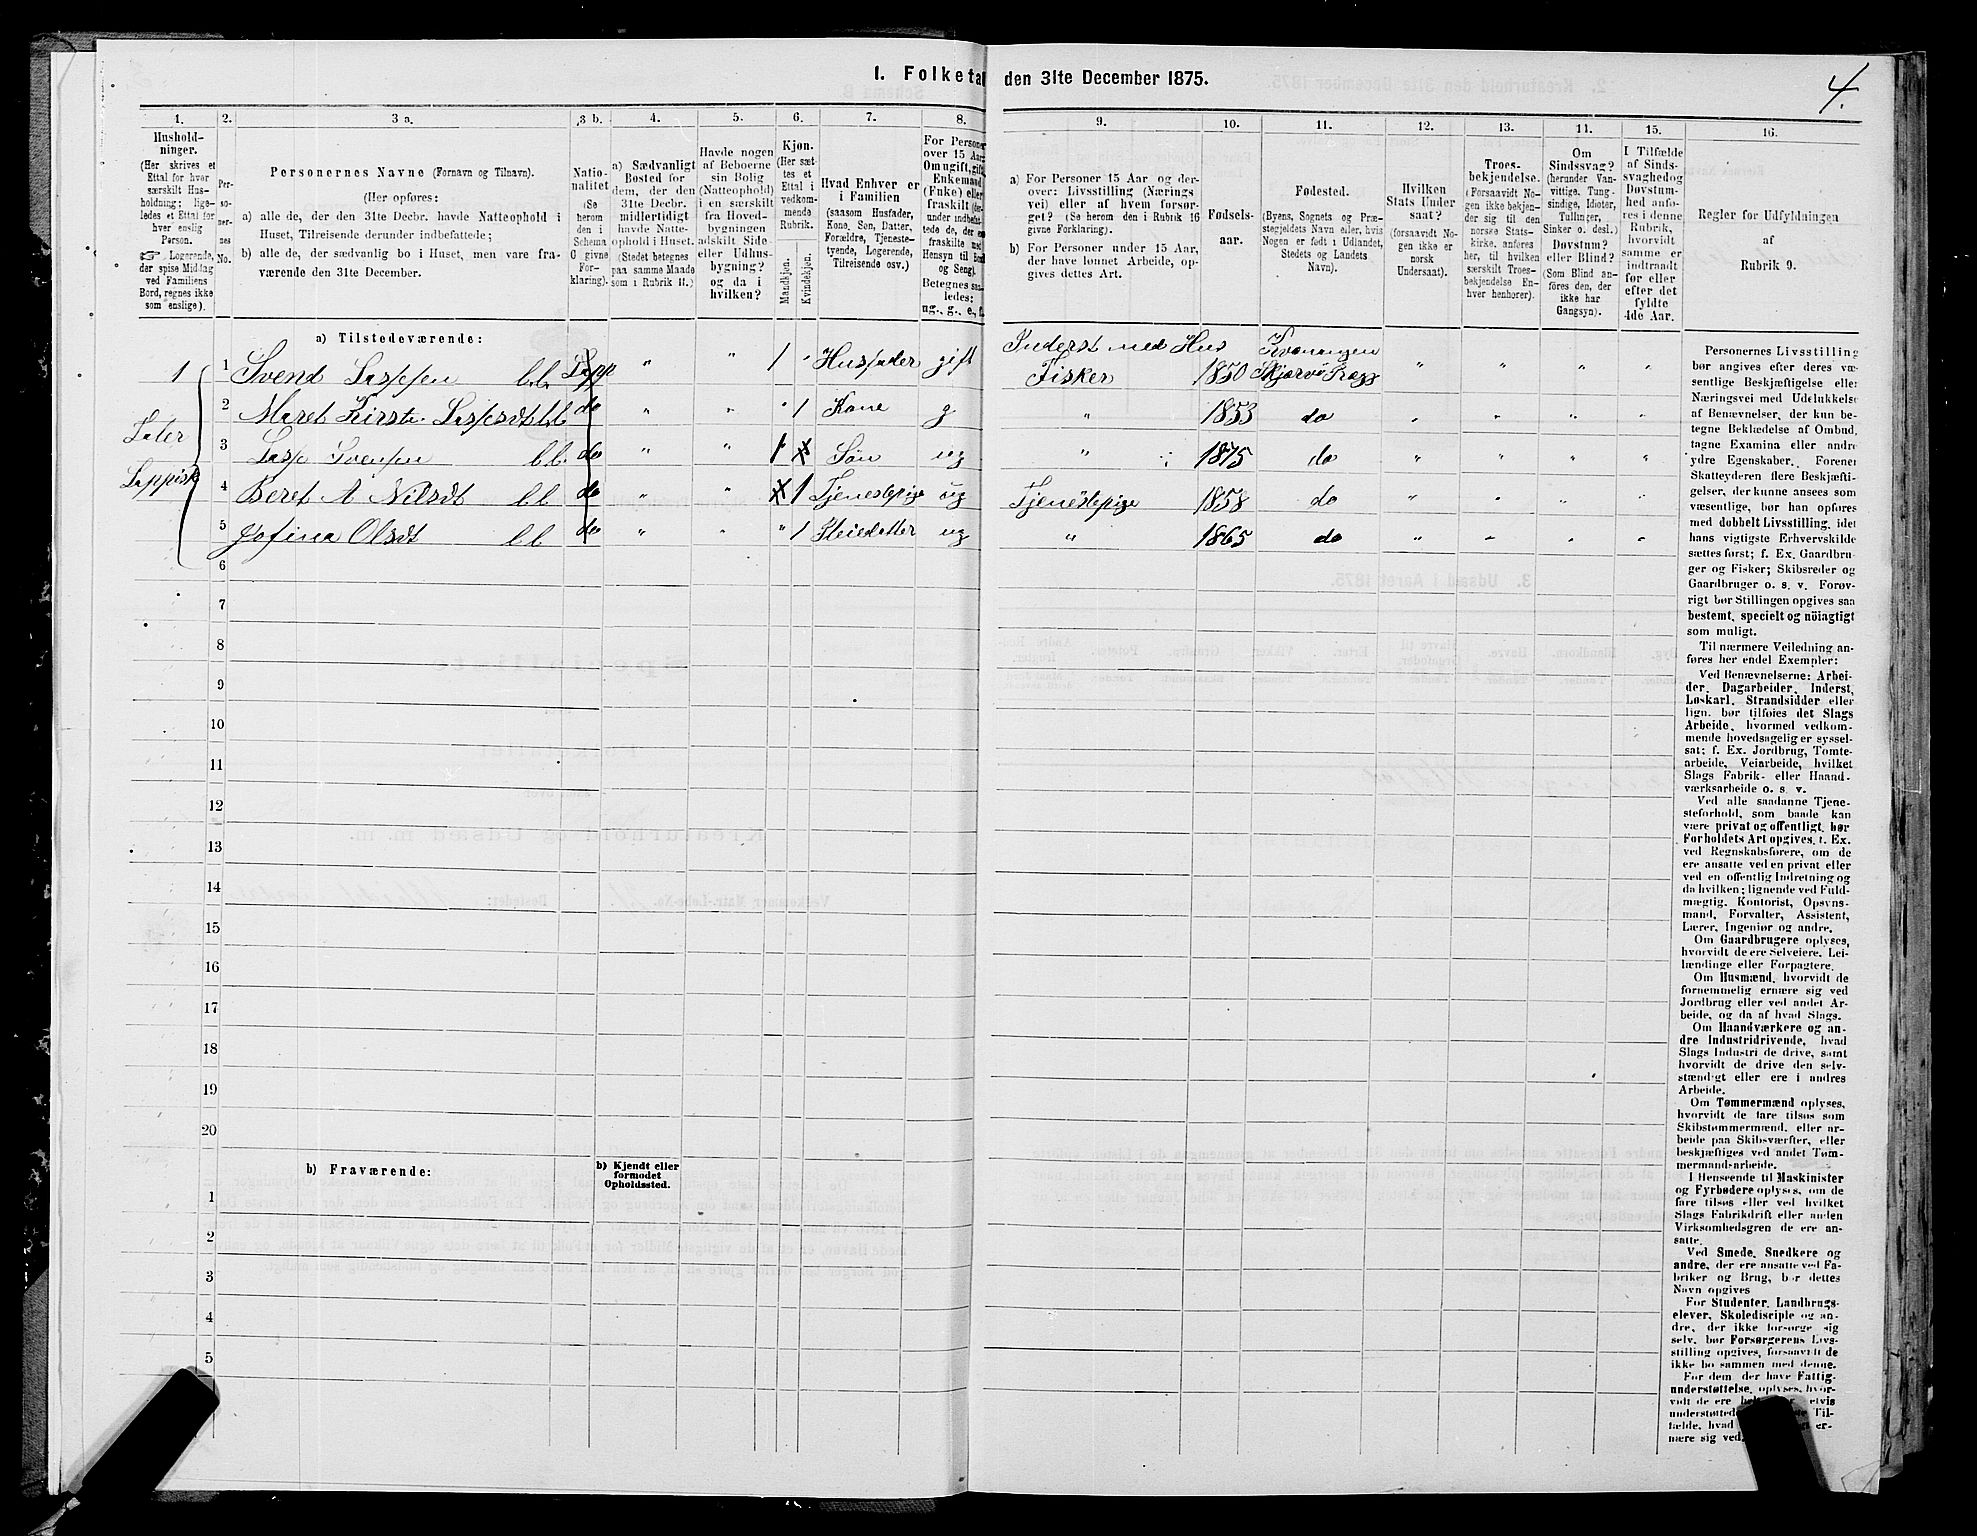 1. Folketal den 31te December 1875.
4.
1.
Hushold-
ninger.
(Her skrives et
Ettal for hver
særskilt Hus-
holdning; lige-
ledes et Ettal for
hver enslig
Person.
☞ Logerende,
der spise Middag
ved Familiens
Bord, regnes ikke
som enslige).
2.
Per-
so-
ner-
nes
No.
3 a.
Personernes Navne (Fornavn og Tilnavn).
(Her opføres:
a) alle de, der den 31te Decbr. havde Natteophold i
Huset, Tilreisende derunder indbefattede;
b) alle de, der sædvanlig bo i Huset, men vare fra-
værende den 31te December.
3 b.
Natio-
nalitet
(Se
herom
den i
Schema
C givne
For-
klaring).
4.
a) Sædvanligt
Bosted for
dem, der den
31te Decbr.
midlertidigt
havde Natte-
ophold i Huset.
(Stedet betegnes
paa samme Maade
som i Rubrik 11.)
5.
Havde nogen
af Beboerne
sin Bolig
(Natteophold)
i en særskilt
fra Hoved-
bygningen
adskilt Side-
eller Udhus-
bygning?
og da i
hvilken?
6.
Kjøn.
(Her sæt-
tes et
Ettal i
vedkom-
mende
Rubrik.
Mandkjøn.
Kvindekjøn.
7.
Hvad Enhver er
i Familien
(saasom Husfader,
Kone, Søn, Datter,
Forældre, Tjeneste-
tyende, Logerende,
Tilreisende osv.)
8.
For Personer
over 15 Aar:
Om ugift, gift,
Enkemand
(Enke) eller
fraskilt
Betegnes saa-
ledes:
ug., g., e., f.
9.
a) For Personer 15 Aar og der-
over: Livsstilling (Nærings
vei) eller af hvem forsør-
get? (Se herom den i Rubrik 16
givne Forklaring).
b) For Personer under 15 Aar,
der have lønnet Arbeide, op-
gives dettes Art.
10.
Fødsels-
aar.
11.
Fødested.
(Byens, Sognets og Præ-
stegjeldets Navn eller, hvis
Nogen er født i Udlandet,
Stedets og Landets
Navn).
12.
Hvilken
Stats Under
saat?
(forsaavidt No-
gen ikke er
norsk
Undersaat).
13.
Troes-
bekjendelse.
(Forsaavidt No-
gen ikke bekjen-
der sig til den
norske Stats-
kirke, anføres
her, til hvilken
særskilt Troes-
bekjendelse En-
hver henhører).
11.
Om
Sindssvag?
(herunder Van-
vittige, Tung-
sindige, Idioter,
Tullinger,
Sinker o. desl.)
Døvstum?
eller Blind?
(Som Blind an-
føres den, der
ikke har
Gangsyn).
15.
I Tilfælde
af Sinds-
svaghed og
Døvstum-
hed anfø-
res i denne
Rubrik,
hvorvidt
samme er
indtraadt
før eller
efter det
fyldte
4de Aar.
16.
Regler for Udfyldningen
af
Rubrik 9.
a) Tilstedeværende:
1 1 Svend b.b. Lapp " " 1 " Husfader gift Inderst med Hus Fisker 1850 Kvænangen Skjervø Præg " " " "
2 Maret Kirste b.b. do " " " 1 Kone g " 1853 do " " " "
3 b.b. do " " 1 Søn ug " 1875 do " " " "
Taler Lappisk
4 Beret A Nilsdt b.b. do " " 1 Tjenestepige ug Tjenestepige 1858 do " " " "
5 Jofina Olsdt b.b. do " " " 1 Pleiedatter ug " 1865 do " " " "
6
7
8
9
10
11
12
13
14
15
16
17
18
19
20
b) Fraværende:
b) Kjendt eller
formodet
Opholdssted.
1
2
3
4
5
Personernes Livsstilling
bør angives efter deres væ-
sentlige Beskjæftigelse eller
Næringsvei med Udelukkelse
af Benævnelser, der kun be-
tegne Beklædelse af Ombud,
tagne Examina eller andre
ydre Egenskaber. Forener
Skatteyderen flere Beskjæfti-
gelser, der kunne ansees som
væsentlige, bør han opføres
med dobbelt Livsstilling, idet
hans vigtigste Erhvervskilde
sættes først; f. Ex. Gaardbru-
ger og Fisker; Skibsreder og
Gaardbruger o. s. v. Forøv-
rigt bør Stillingen opgives saa
bestemt, specielt og nöiagtigt
som muligt.
Til nærmere Veiledning an-
føres her endel Exempler:
Ved Benævnelserne: Arbei-
der, Dagarbeider, Inderst,
Løskarl, Strandsidder eller
lign. bør tilføies det Slags
Arbeide, hvormed vedkom-
mende hovedsagelig er syssel-
sat; f. Ex. Jordbrug, Tomte-
arbeide, Veiarbeide, hvilket
Slags Fabrik- eller Haand-
værksarbeide o. s. v.
Ved alle saadanne Tjene-
steforhold, som baade kan
være privat og offentligt, bør
Forholdets Art opgives, t. Ex.
ved Regnskabsførere, om de
ere ansatte ved en privat eller
ved en offentlig Indretning og
da hvilken; lignende ved Fuld-
mægtig, Kontorist, Opsyns-
mand, Forvalter, Assistent,
Lærer, Ingeniør og andre.
Om Gaardbrugere oplyses,
hvorvidt de ere Selveiere, Lei-
lændinge eller Forpagtere.
Om Husmænd, hvorvidt de
fornemmelig ernære sig ved
Jordbrug eller ved andet Ar-
beide, og da af hvad Slags.
Om Haandværkere og an-
dre Industridrivende, hvad
Slags Industri de drive, samt
hvorvidt de drive den selv-
stændigt eller ere i andres
Arbeide.
Om Tømmermænd oplyses,
hvorvidt de fare tilsøs som
Skibstømmermænd, eller ar-
beide paa Skibsværfter, eller
beskjæftiges ved andet Tøm-
mermandsarbeide.
I Henseende til Maskinister
og Fyrbødere oplyses, om de
fare tilsøs eller ved hvilket
Slags Fabrikdrift eller anden
Virksomhedsgren de ere an-
satte.
Ved Smede, Snedkere og
andre, der ere ansatte ved Fa-
briker og Brug, bør dettes
Navn opgives
For Studenter, Landbrugs-
elever, Skoledisciple og an-
dre, der ikke forsørge sig
selv, bør Forsørgerens Livs-
stilling opgives, forsaavidt de
ikke bo sammen med denne.
For dem, der have Fattig-
understøttelse, oplyses, hvor-
vidt de ere
understøttede Til-
fælde, hvad er-
nære sig ved.